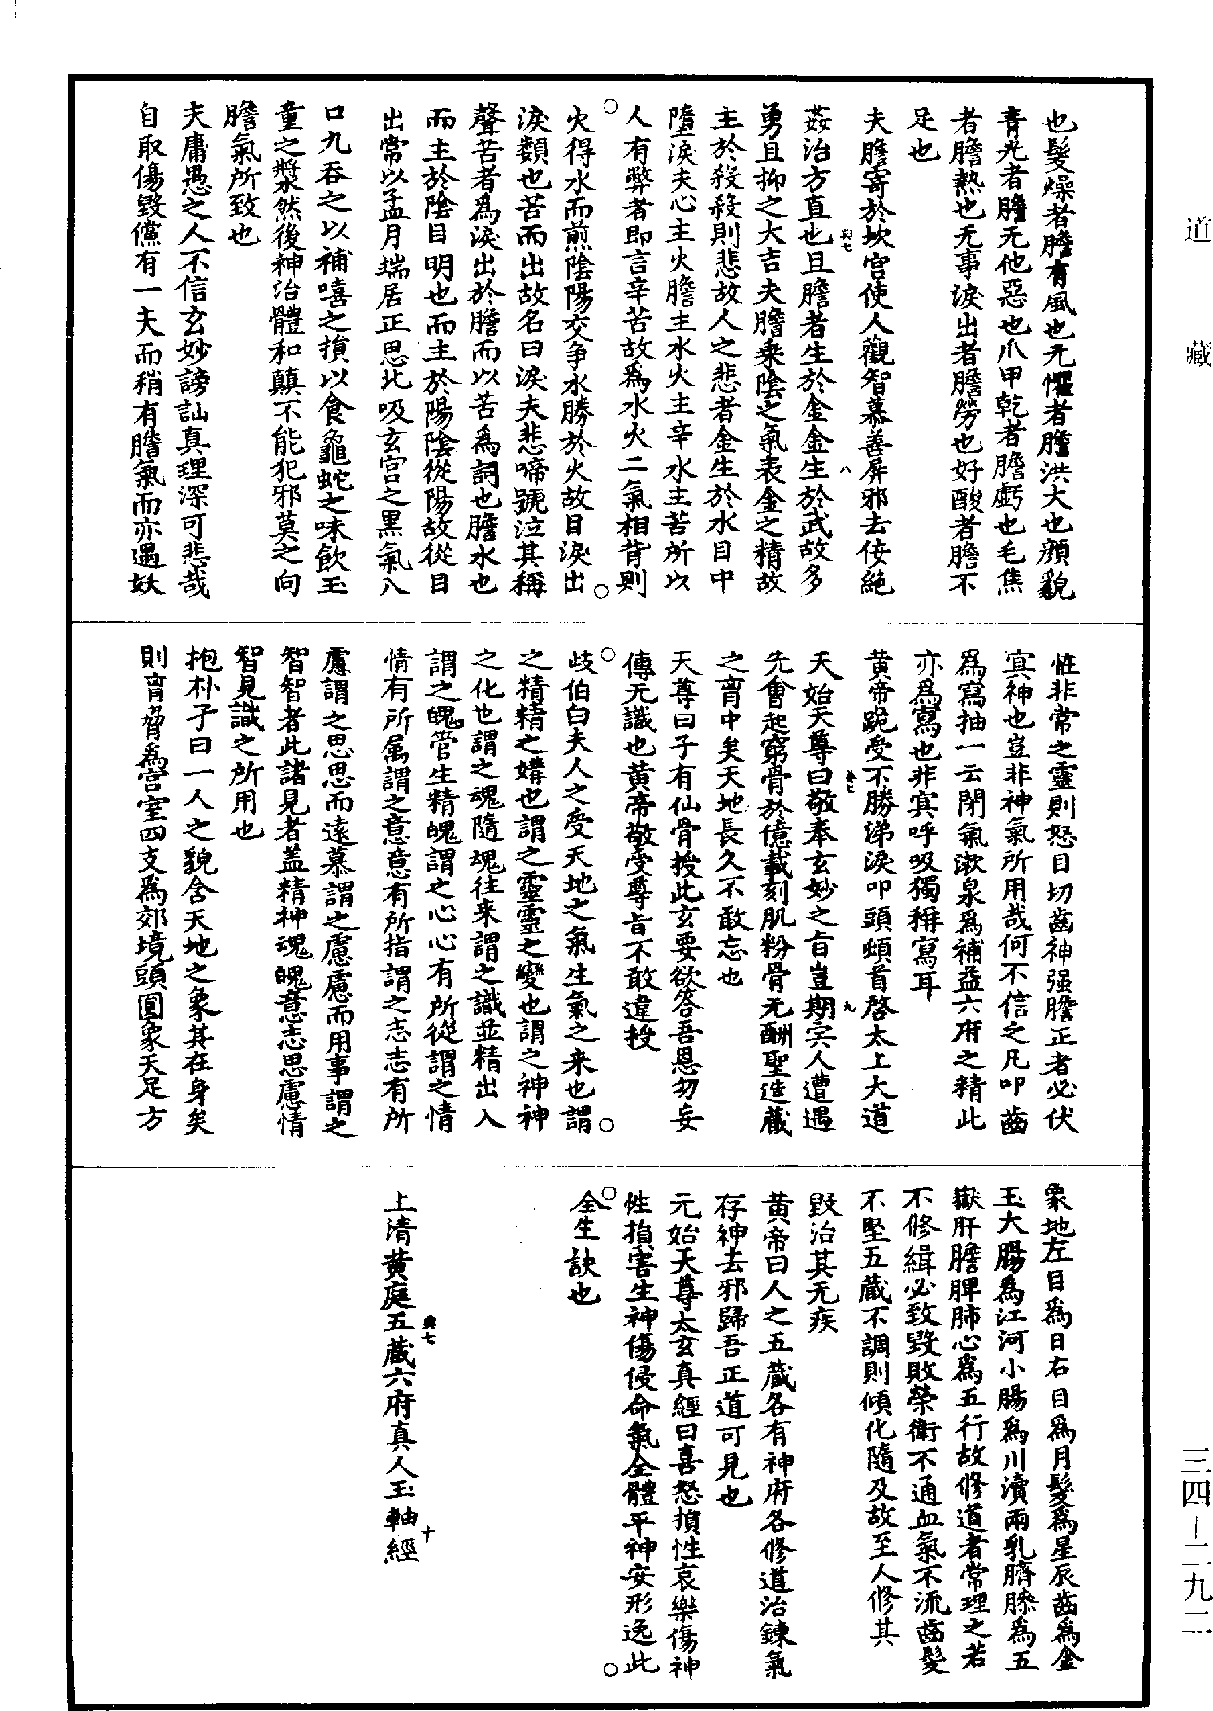 道藏
三四—二九二
也髮燥者膽有風也无懼者膽洪大也顏貌
青光者膽无他惡也爪甲乾者膽虧也毛焦
者膽熱也无事淚出者膽勞也好酸者膽不
足也
夫膽寄於坎宮使人觀智慕善屏邪去佞絕
姦治方直也且膽者生於金金生於武故多
勇且抑之大吉夫膽乘陰之氣表金之精故
主於殺殺則悲故人之悲者金生於水目中
墮淚夫心主火膽主水火主辛水主苦所以
人有弊者即言辛苦故為水火二氣相背則
火得水而煎陰陽交爭水勝於火故目淚出
淚類也苦而出故名曰淚夫悲啼號泣其稱
聲苦者為淚出於膽而以苦為詞也膽水也
而主於陰目明也而主於陽陰從陽故從目
出常以孟月端居正思北吸玄宮之黑氣入
口九吞之以補嘻之損以食龜蛇之味飲玉
童之漿然後神治體和顛不能犯邪莫之向
膽氣所致也
夫庸愚之人不信玄妙謗訕真理深可悲哉
自取傷毀儻有一夫而稍有膽氣而亦遇妖
怪非常之靈則怒目切齒神强膽正者必伏
寘神也豈非神氣所用哉何不信之凡叩齒
為寫抽一云閉氣漱泉為補益六府之精此
亦為寫也非寘呼吸獨稱寫耳
黃帝跪受不勝涕淚叩頭頓首啓太上大道
天始天尊曰敬奉玄妙之旨豈期宾人遭遇
先會起窮骨於億載刻肌粉骨无酬聖造藏
之育中矣天地長久不敢忘也
天尊曰子有仙骨授此玄要欲答吾恩勿妄
傳无識也黃帝敬受尊旨不敢違投
歧伯曰夫人之受天地之氣生氣之来也謂
之精精之媾也謂之靈靈之變也謂之神神
之化也謂之魂隨魂往来謂之識並精出入
謂之魄管生精魄謂之心心有所從謂之情
情有所属謂之意意有所指謂之志志有所
慮謂之思思而遠慕謂之慮慮而用事謂之
智智者此諸見者盖精神魂魄意志思慮情
智見識之所用也
抱朴子曰一人之貌含天地之象其在身矣
則育脅為宫室四支為郊境頭圓象天足方
象地左目為日右目為月髮為星辰齒為金
玉大腸為江河小腸為川瀆兩乳臍膝為五
嶽肝膽脾肺心為五行故修道者常理之若
不修緝必致毀敗榮衛不通血氣不流齒髮
不堅五藏不調則傾化隨及故至人修其
毀治其无疾
黃帝曰人之五藏各有神府各修道治鍊氣
存神去邪歸吾正道可見也
元始天尊太玄真經曰喜怒損性哀樂傷神
性損害生神傷侵命氣全體平神安形逸此
全生訣也
上清黃庭五藏六府真人玉軸經